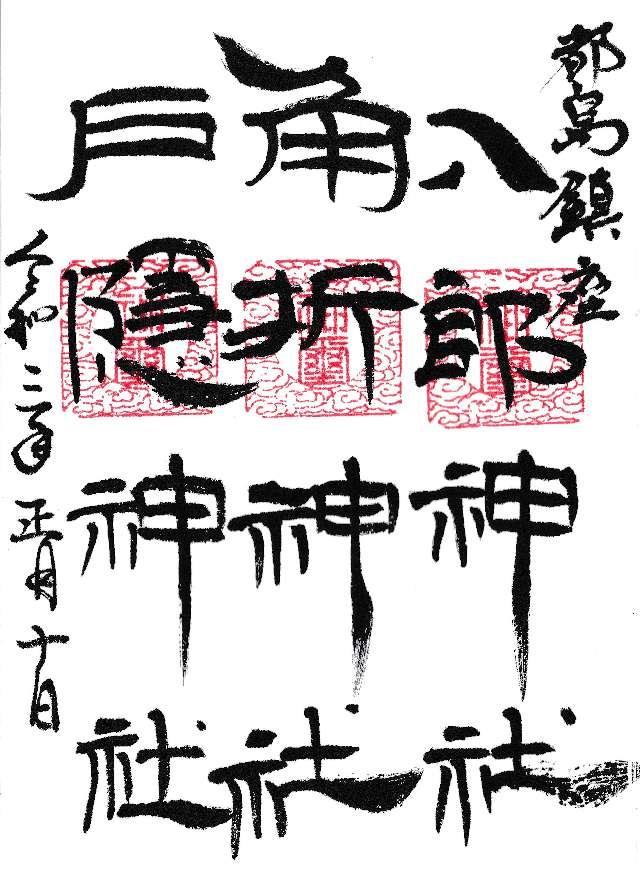 都島鎮座
八郎神社
角折神社
戸隠神社
令和三年正月十日